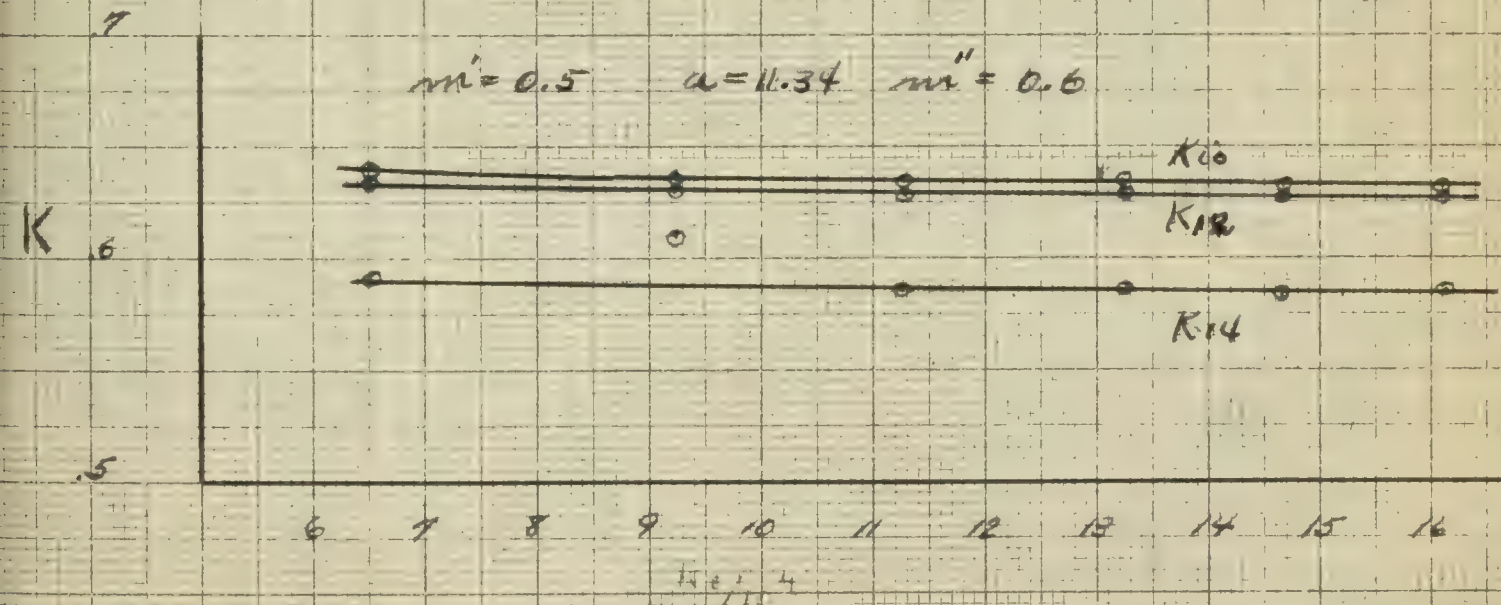 .7
m' = 0.5 a = 11.34 m'' = 0.6
K10
K
K12
.6
K14
.5
6 7 8 9 10 11 12 13 14 15 16